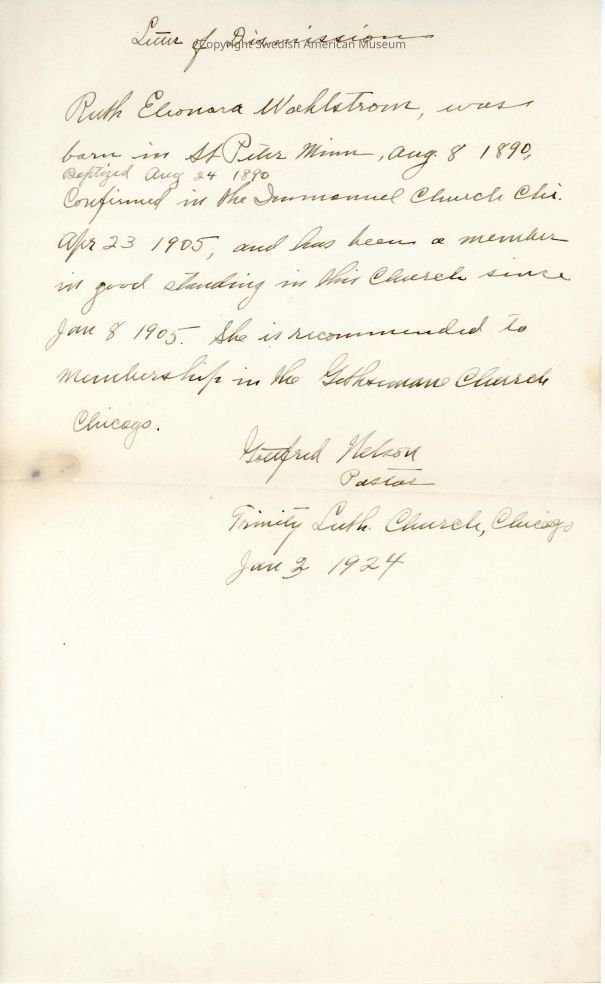 Letter of Dismission
Copyright Swedish American Museum
Ruth Elionara Wahlstrom, was
born in St Peter Minn, Aug. 8 1890,
Baptized Aug 24 1890
Confirmed in the Immanuel Church Chi.
Apr 23 1905, and has been a member
in good standing in this Church since
Jan 8 1905. She is recommended to
membership in the Gethsemane Church
Chicago.
Gottfred Nelson
Pastor
Trinity Luth. Church, Chicago
Jan 2 1924